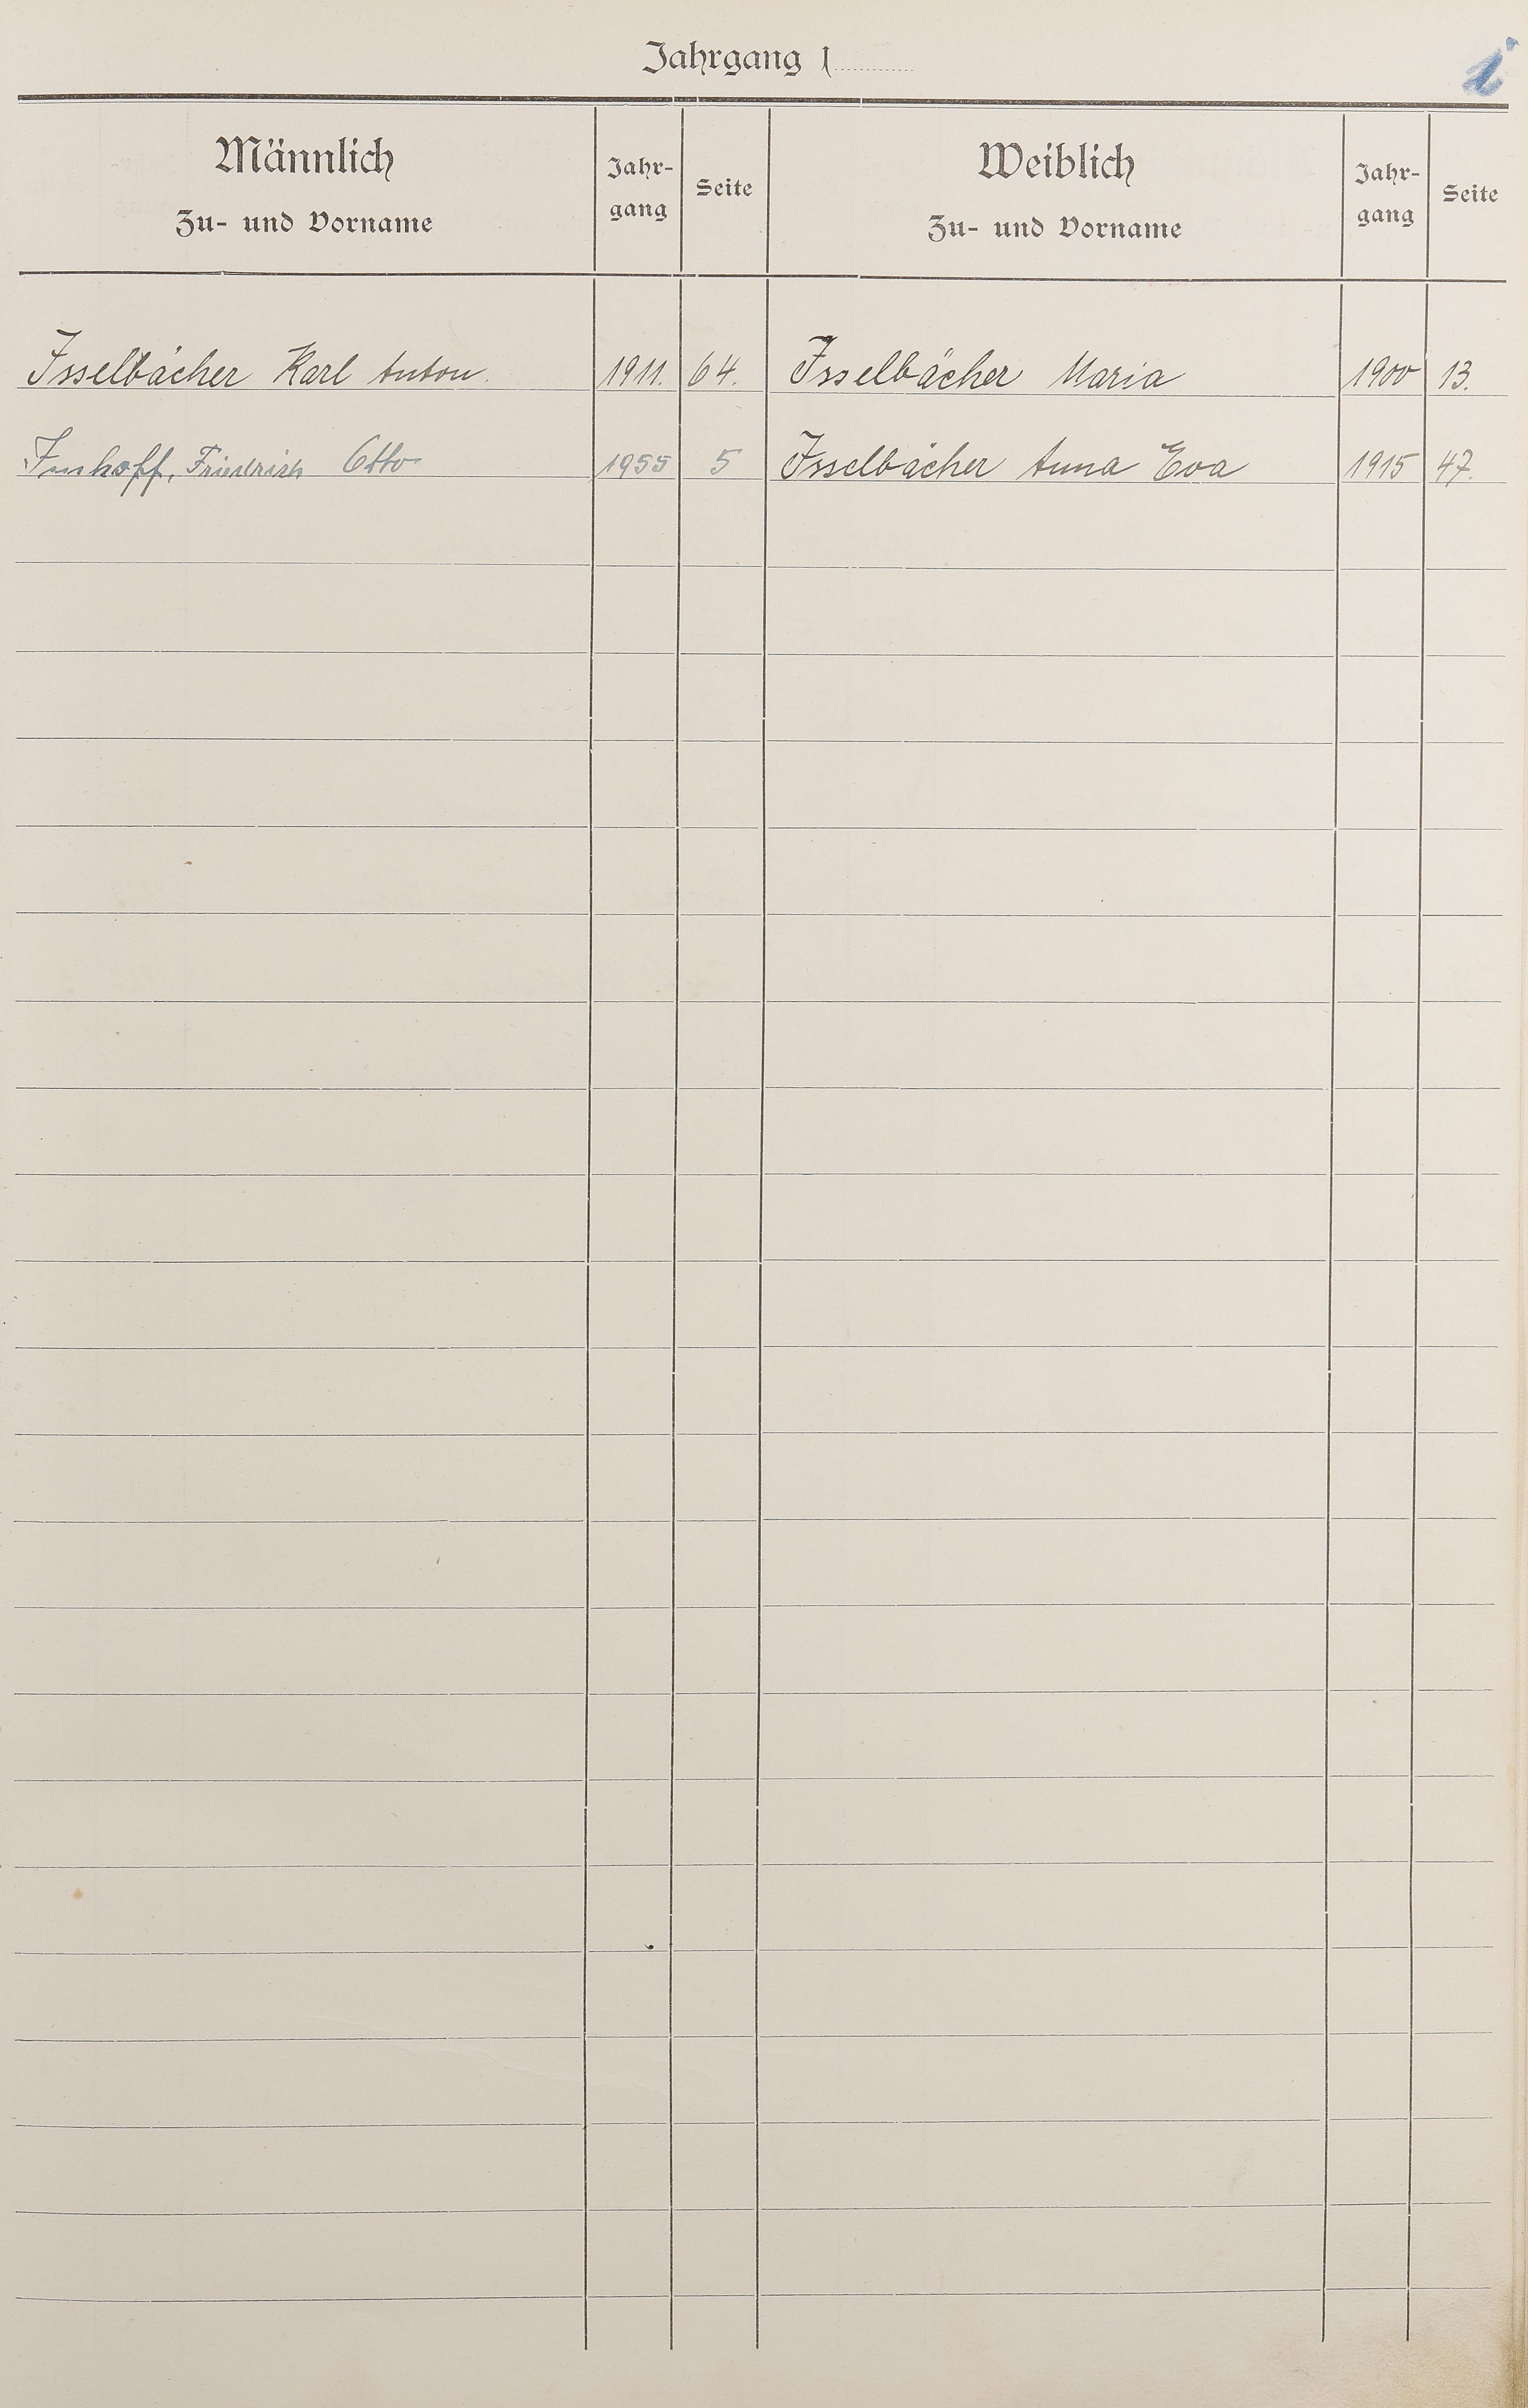 Jahrgang 1
i
Männlich
Zu- und Vorname
Jahr-
gang
Seite
Weiblich
Zu- und Vorname
Jahr-
gang
Seite
Isselbächer Karl Anton. 1911. 64. Isselbächer Maria 1900 13.
Imhoff, Friedrich Otto 1955 5 Isselbächer Anna Eva 1915 47.